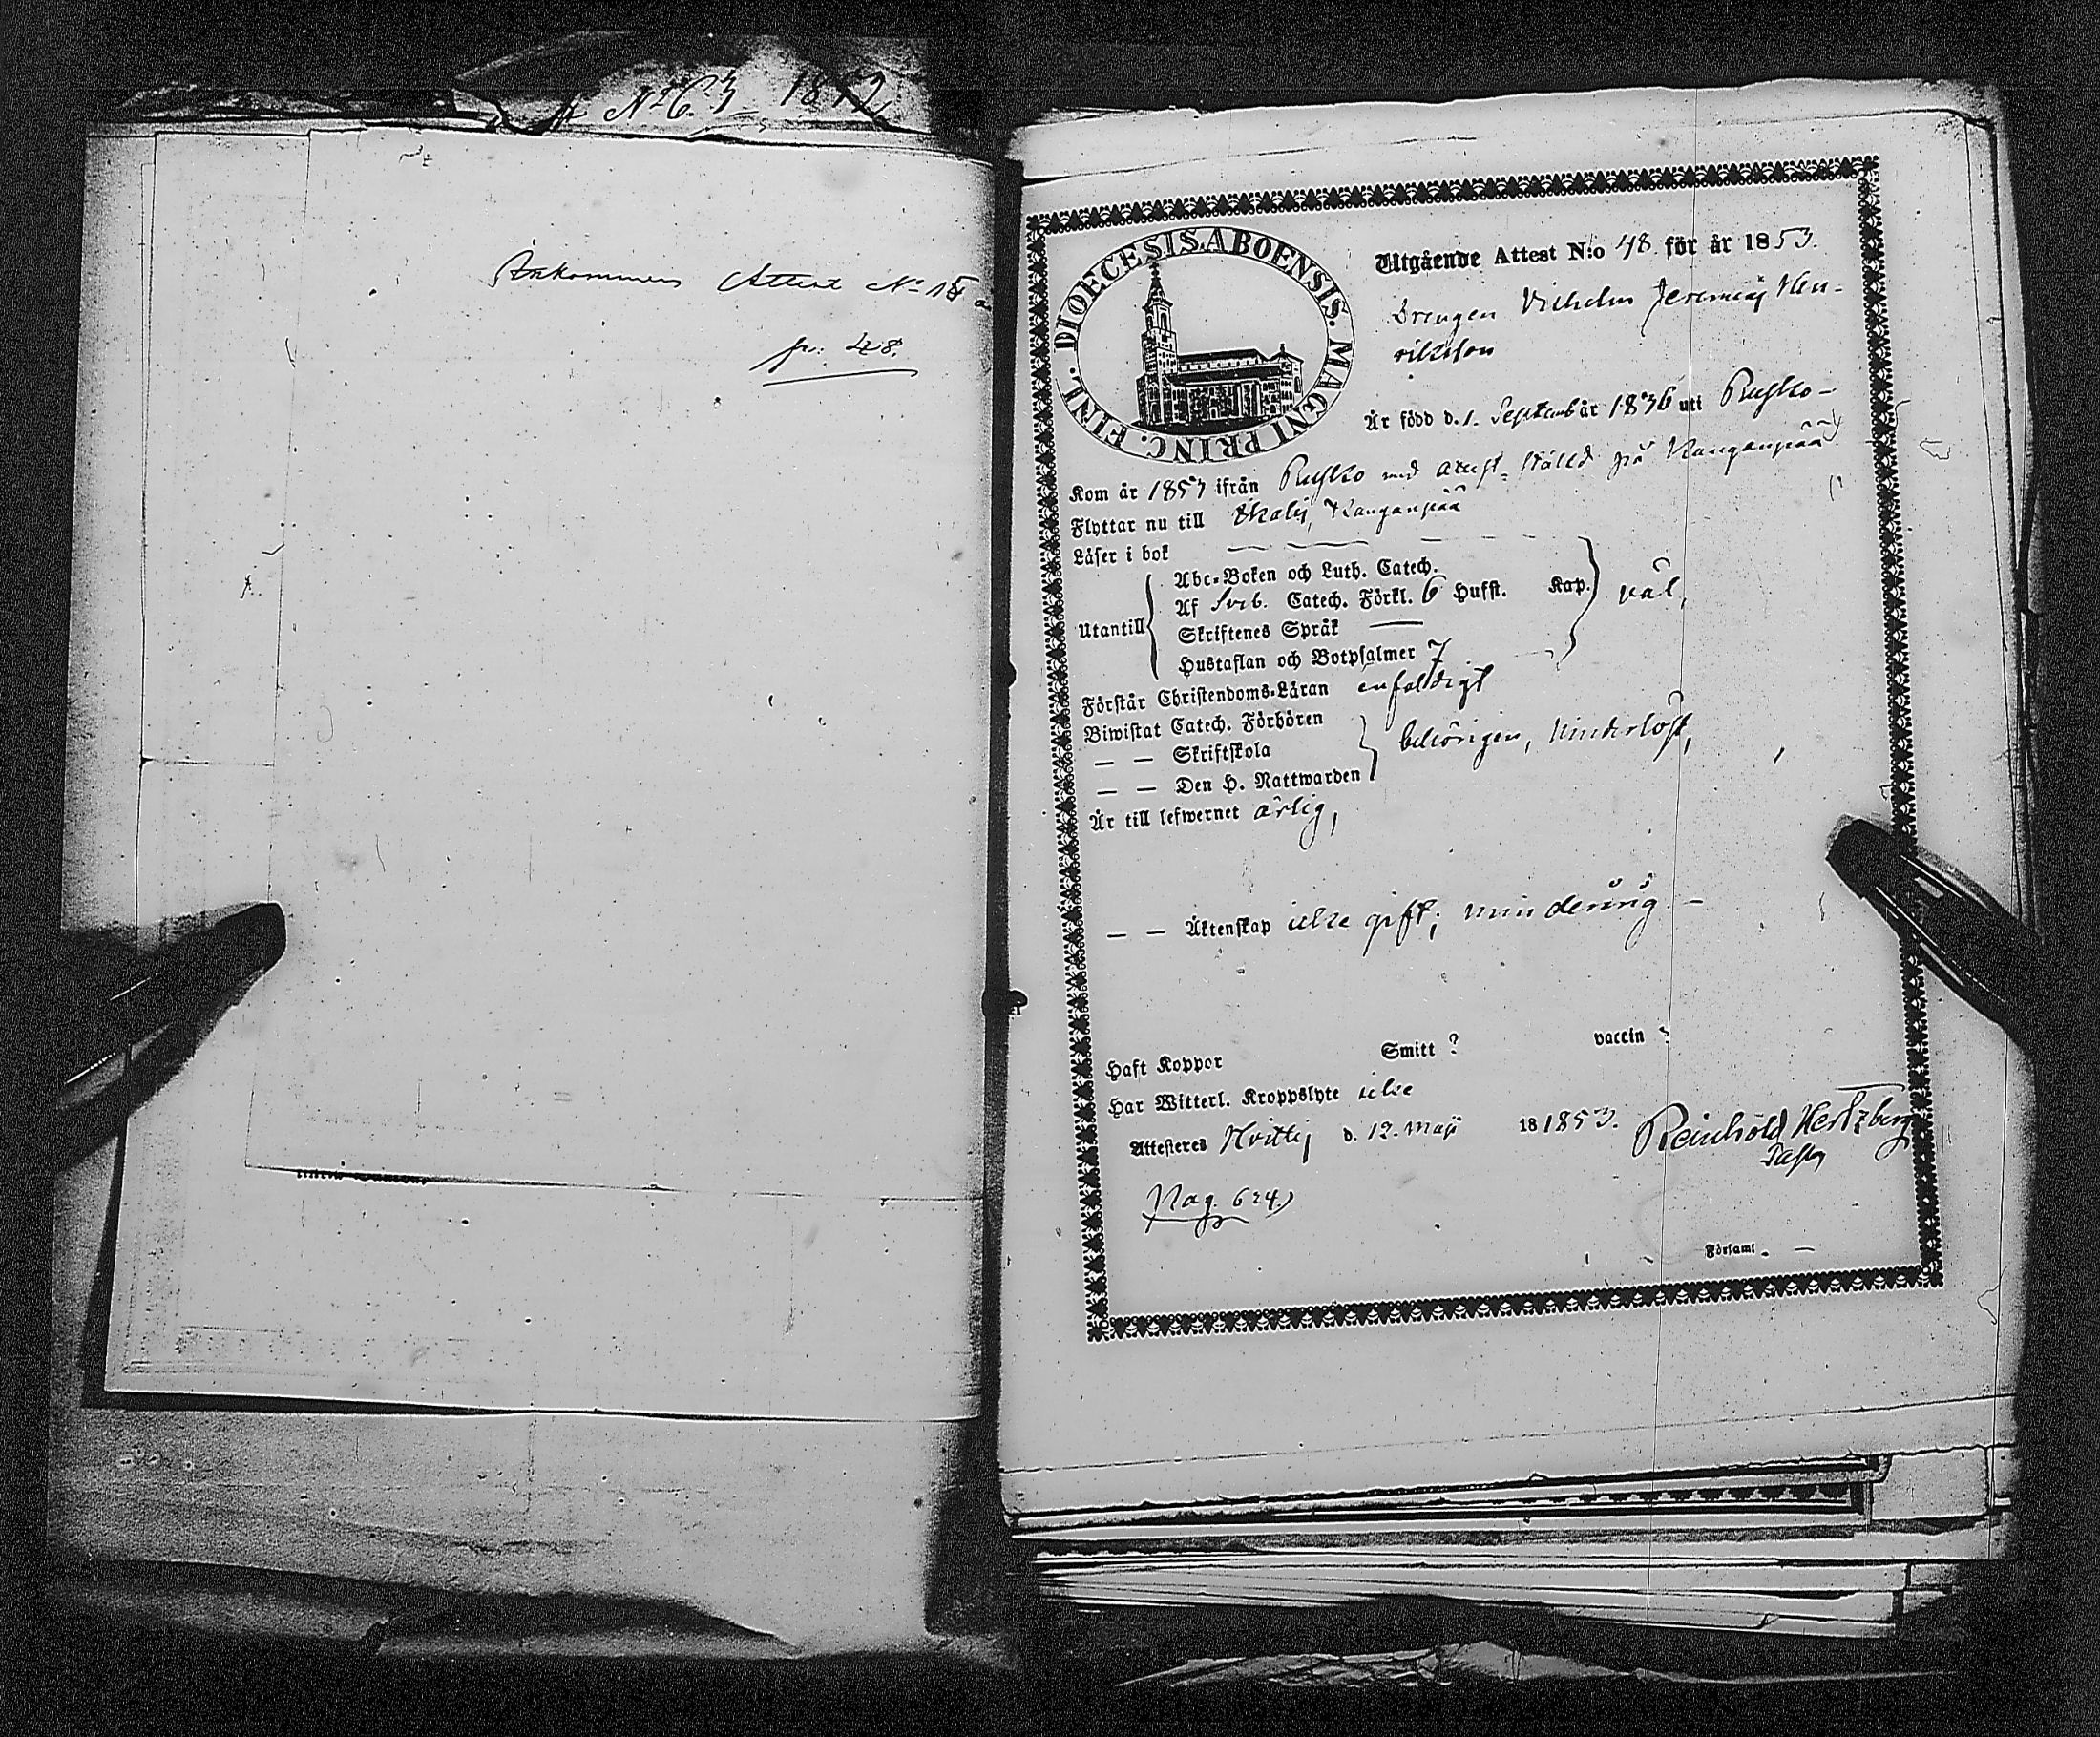 № 63 1852
Ankommen Attest № 15 a
pr: 48.
DIOECESIS ABOENSIS. MAGNI PRINC. FINL.
Utgående Attest N:o 48. för år 1853.
Drengen Vilhelm Jeremias Hen-
riksson
Är född d. 1. Septemb år 1836 uti Pusko-
Kom år 1853 ifrån Pusko med attest ställd på Kanganpää
Flyttar nu till Ikalis, Kanganpää
Läser i bok
Abc-Boken och Luth. Catech.
Utantill Af Sveb. Catech. Förkl. 6 Hufst. Kap. väl,
Skriftenes Språk —
Hustaflan och Botpsalmer 7
Förstår Christendoms-Läran enfaldigt
Biwistat Catech. Förhören
— — Skriftskola behörigen, hinderlöst,
— — Den H. Nattwarden
Är till lefwernet ärlig,
— — Äktenskap icke gift; minderårig. -
Haft Koppor Smitt ? vaccin ?
Har Witterl. Kroppslyte icke
Attesteres Hvittis d. 12. Maji 18 1853. Reinhold Hertzberg
Pag. 624)
Församl. —